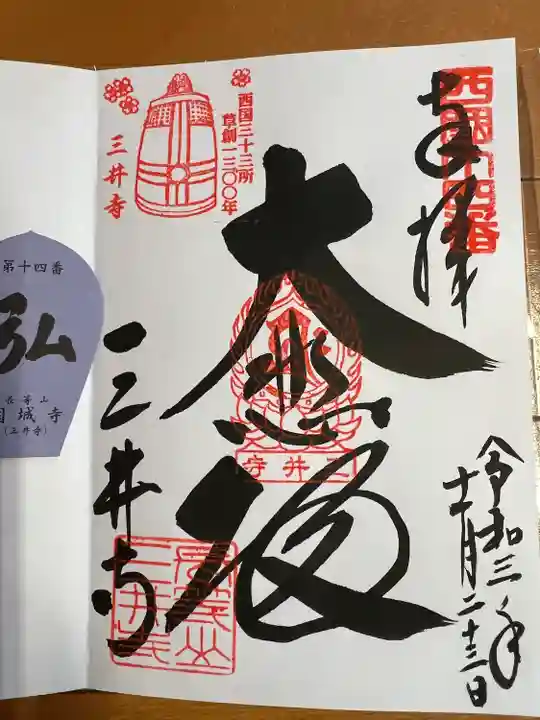 奉拝
西国十四番
令和三年
十一月二十三日
大悲殿
三井寺
西国三十三所
草創一三〇〇年
三井寺
三井寺
長等山
三井寺
第十四番
弘
長等山
園城寺
(三井寺)